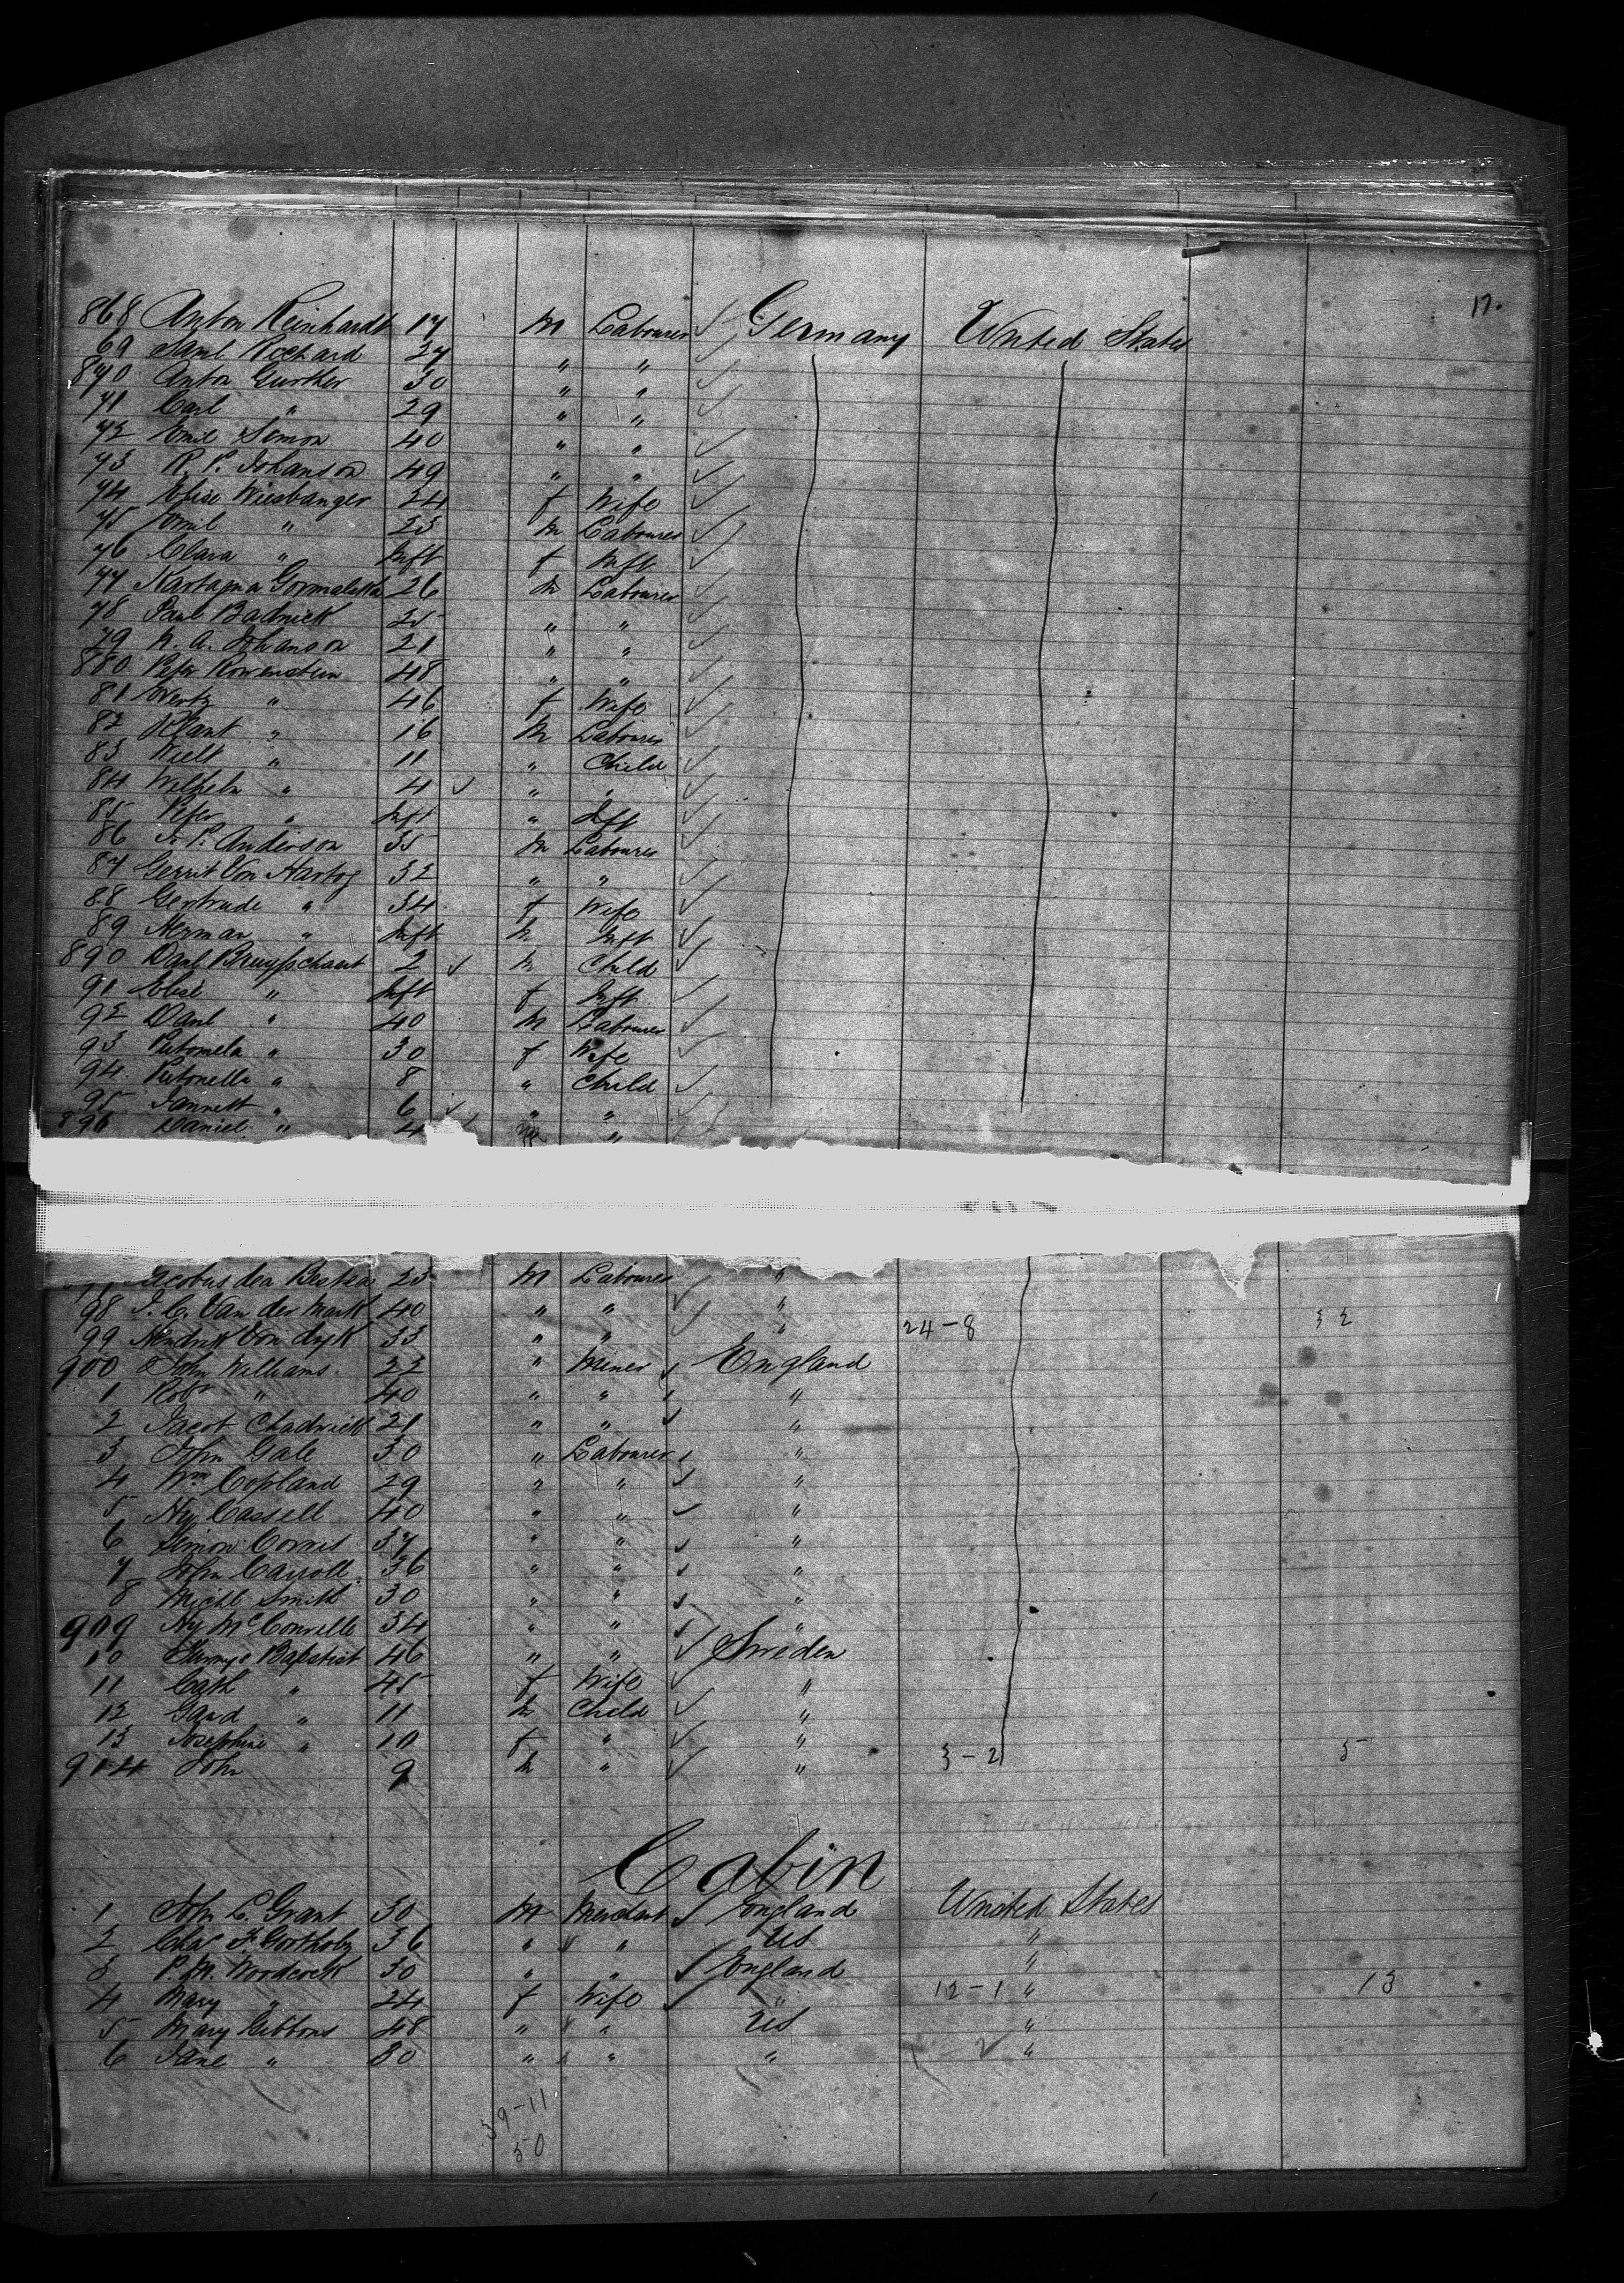 17.
868 Anton Reinhardt 17 M Labourer Germany United States
69 Saml Rochard 27 " "
870 Anton Gunther 30 " "
71 Carl " 29 " "
72 Emil Simon 40 " "
73 R. P. Johanson 49 " "
74 Elise Wiesbanger 24 f Wife
75 Emil " 23 M Labourer
76 Clara " Inft f Inft
77 26 M Labourer
78 Paul Badnick 25 " "
79 N. A. Johanson 21 " "
880 Peter Rowenstein 48 " "
81 " 46 f Wife
82 " 16 M Labourer
83 " 11 " Child
84 Wilhelm " 4 " "
85 Peter " Inft " Inft
86 P. Anderson 35 M Labourer
87 Gerrit Von Hartog 32 " "
88 Gertrude " 34 f Wife
89 Herman " Inft M Inft
890 Danl Bruysschaert 2 M Child
91 Elise " Inft f Inft
92 Danl " 40 M Labourer
93 Petomela " 30 f Wife
94 Petonella " 8 " Child
95 Jannett " 6 " "
896 Daniel " 4 M "
Jacobus den 23 M Labourer "
98 J. C. Van der Mark 40 " " "
99 Hendrik Von dyk 33 " " " 24-8 32
900 John Williams 22 " Miner England
1 Robt " 40 " " "
2 Jacob Chadwick 21 " " "
3 John Gale 30 " Labourer "
4 Wm Copland 29 " " "
5 Hy Cassell 40 " " "
6 Simon Corris 37 " " "
7 John Carroll 36 " " "
8 Michl Smith 30 " " "
909 Hy McConville 34 " " "
10 Baptist 46 " " Sweden
11 Cath " 45 f Wife "
12 " 11 M Child "
13 Josephine " 10 f " "
914 John 9 M " " 3-2 5
Cabin
1 John L. Grant 30 M Merchant England United States
2 Chas F. Gortholz 36 " " US "
3 P. M. Woodcock 30 " " England "
4 Mary " 24 f Wife " 12-1 " 13
5 Mary Gibbons 48 " " US "
6 Jane " 30 " " " 2 "
39-11
50